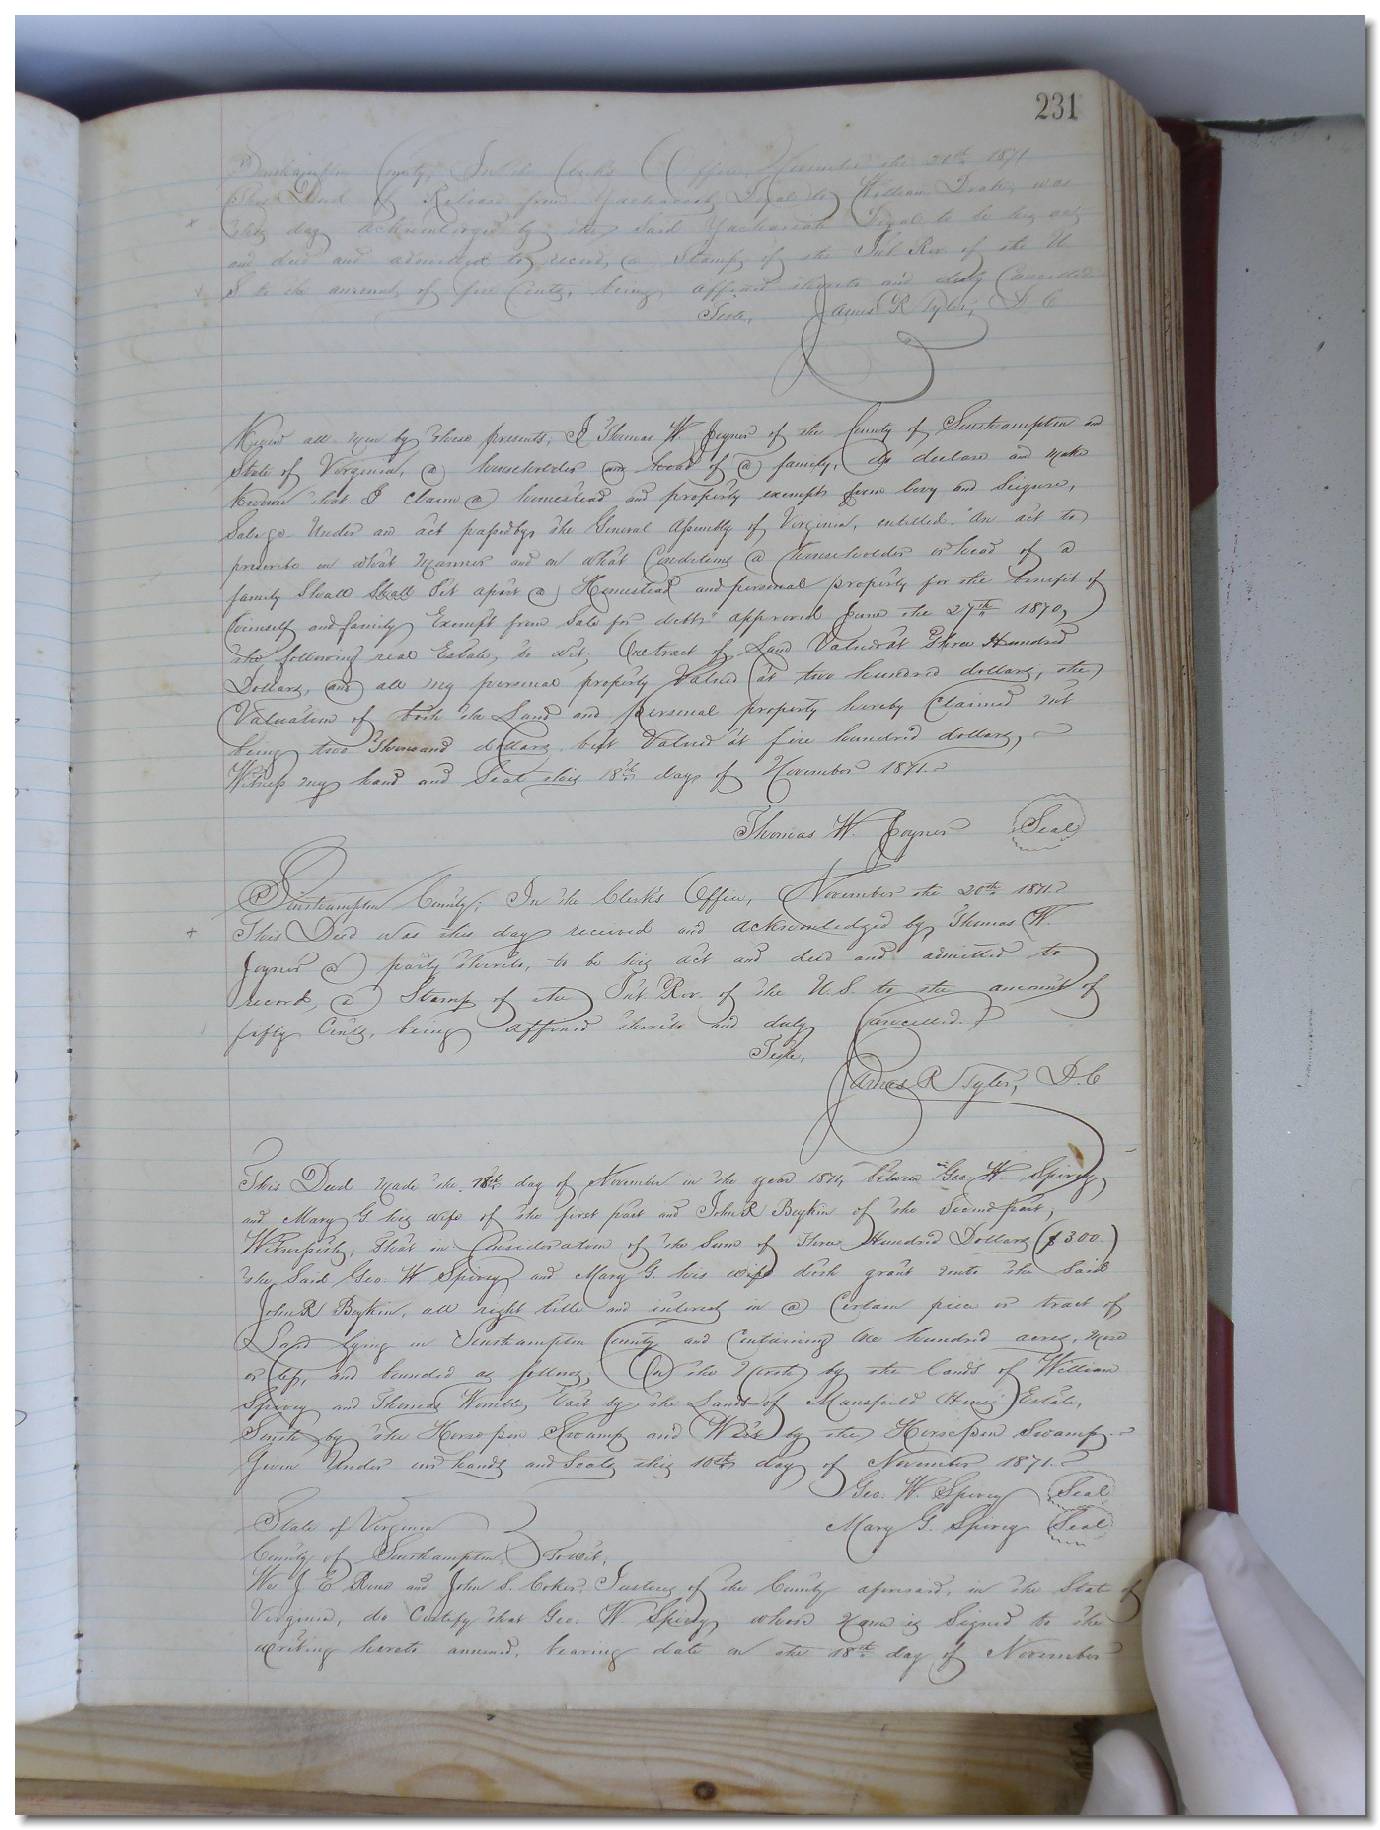 231
Southampton County, In the Clerks Office, November the 20th 1871
This Deed of Release from Zachariah to William Drake, was
this day acknowledged by the said Zachariah to be his act
and deed and admitted to record, a Stamp of the Int. Rev. of the U
S to the amount of five Cents, being affixed thereto and duly Cancelled
Teste, James R Tyler, D. C
Know all men by these presents, I Thomas W. Joyner of the County of Southampton and
State of Virginia, a householder and head of a family, do declare and make
known that I claim a homestead and property exempt from levy and Seizure,
Sale &c Under an act passed by the General Assembly of Virginia, entitled "An act to
prescribe in what manner and on what Conditions a householder or head of a
family Shall Shall Set apart a Homestead and personal property for the benefit of
himself and family Exempt from Sale for debts" approved June the 27th 1870,
the following real Estate, to wit; One tract of Land Valued at Three Hundred
Dollars, and all my personal property Valued at two hundred dollars, the
Valuation of both the Land and personal property hereby Claimed not
being two Thousand dollars but Valued at five hundred dollars,
Witness my hand and Seal this 18th day of November 1871.
Thomas W. Joyner Seal
Southampton County; In the Clerk's Office, November the 20th 1871.
This Deed was this day received and acknowledged by Thomas W.
Joyner a party thereto, to be his act and deed and admitted to
record, a Stamp of the Int. Rev. of the U. S. to the amount of
fifty Cents, being affixed thereto and duly Cancelled.
Teste,
James R Tyler, D. C
This Deed made the 18th day of November in the year 1871, between Geo. W. Spivey
and Mary G his wife of the first part and John R Boykin of the Second part,
Witnesseth, that in Consideration of the Sum of three Hundred Dollars ($300.)
the Said Geo. W Spivey and Mary G. his wife doth grant unto the Said
John R Boykin, all right title and interest in a Certain piece or tract of
Land lying in Southampton County and Containing One hundred acres, more
or less, and bounded as follows; On the North by the lands of William
Spivey and Thomas Womble, East by the Lands of Mansfield Estate,
South by the Horse pen Swamp and West by the Horsepen Swamp.
Given Under our hands and Seals this 10th day of November 1871.
Geo. W. Spivey Seal
State of Virginia Mary G. Spivey Seal
County of Southampton To wit,
We J E and John S. Coker, Justices of the County aforesaid, in the State of
Virginia, do Certify that Geo. W. Spivey whose name is Signed to the
writing hereto annexed, bearing date on the 18th day of November